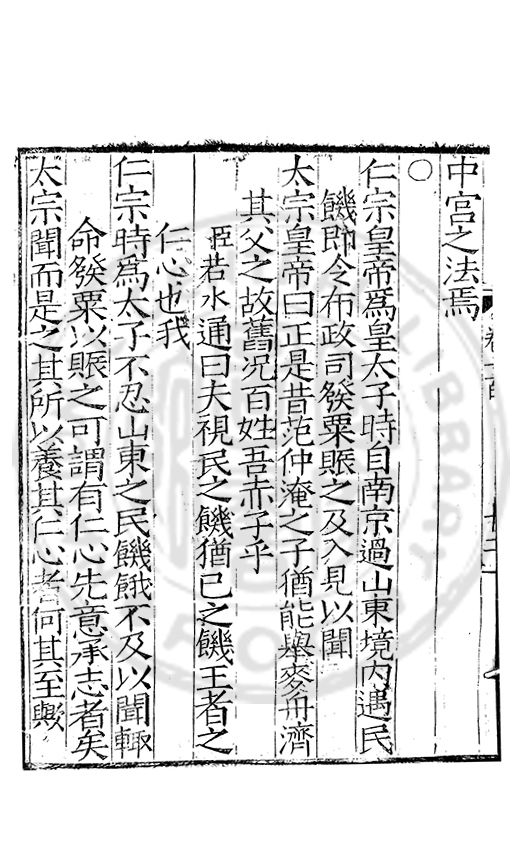 中宮之法焉
○
仁宗皇帝爲皇太子時自南京過山東境内遇民
饑即令布政司發粟賑之及入見以聞
太宗皇帝曰正是昔范仲淹之子猶能舉麥舟濟
其父之故舊况百姓吾赤子乎
臣若水通曰夫視民之饑猶己之饑王者之
仁心也我
仁宗時爲太子不忍山東之民饑餓不及以聞輙
命發粟以賑之可謂有仁心先意承志者矣
太宗聞而是之其所以養其仁心者何其至歟